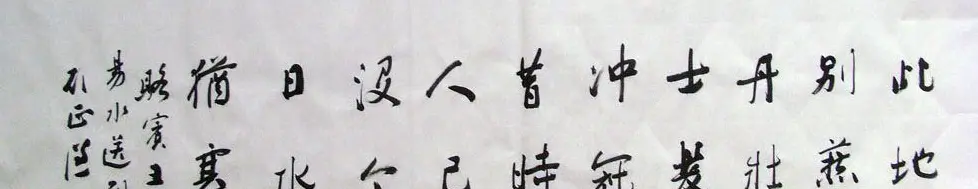 此地
别燕
丹壮
士发
冲冠
昔時
人已
没今
日水
猶寒
駱賓王
易水送别